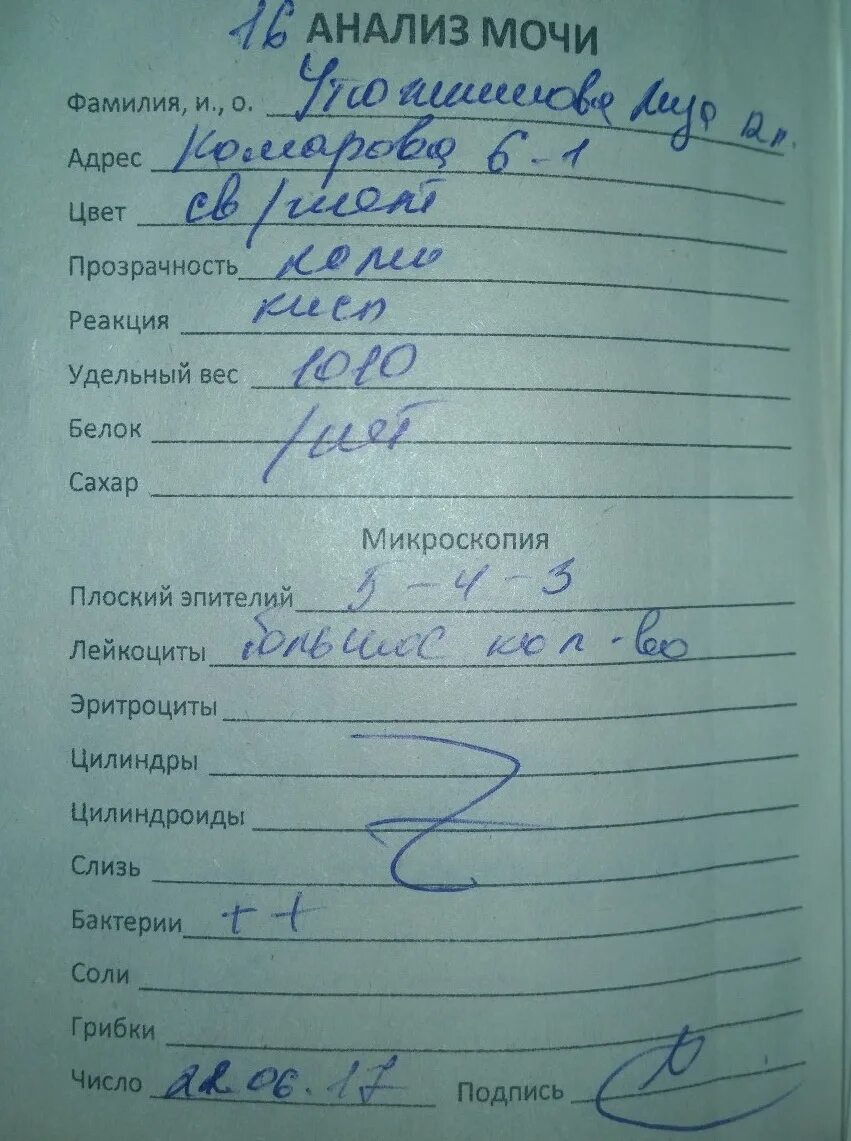 16 АНАЛИЗ МОЧИ
Фамилия, и., о.
Адрес Комарова 6-1
Цвет св/желт
Прозрачность
Реакция кисл
Удельный вес 1010
Белок / нет
Сахар
Микроскопия
Плоский эпителий 5-4-3
Лейкоциты большое кол-во
Эритроциты
Цилиндры
Цилиндроиды
Слизь
Бактерии ++
Соли
Грибки
Число 22.06.17 Подпись